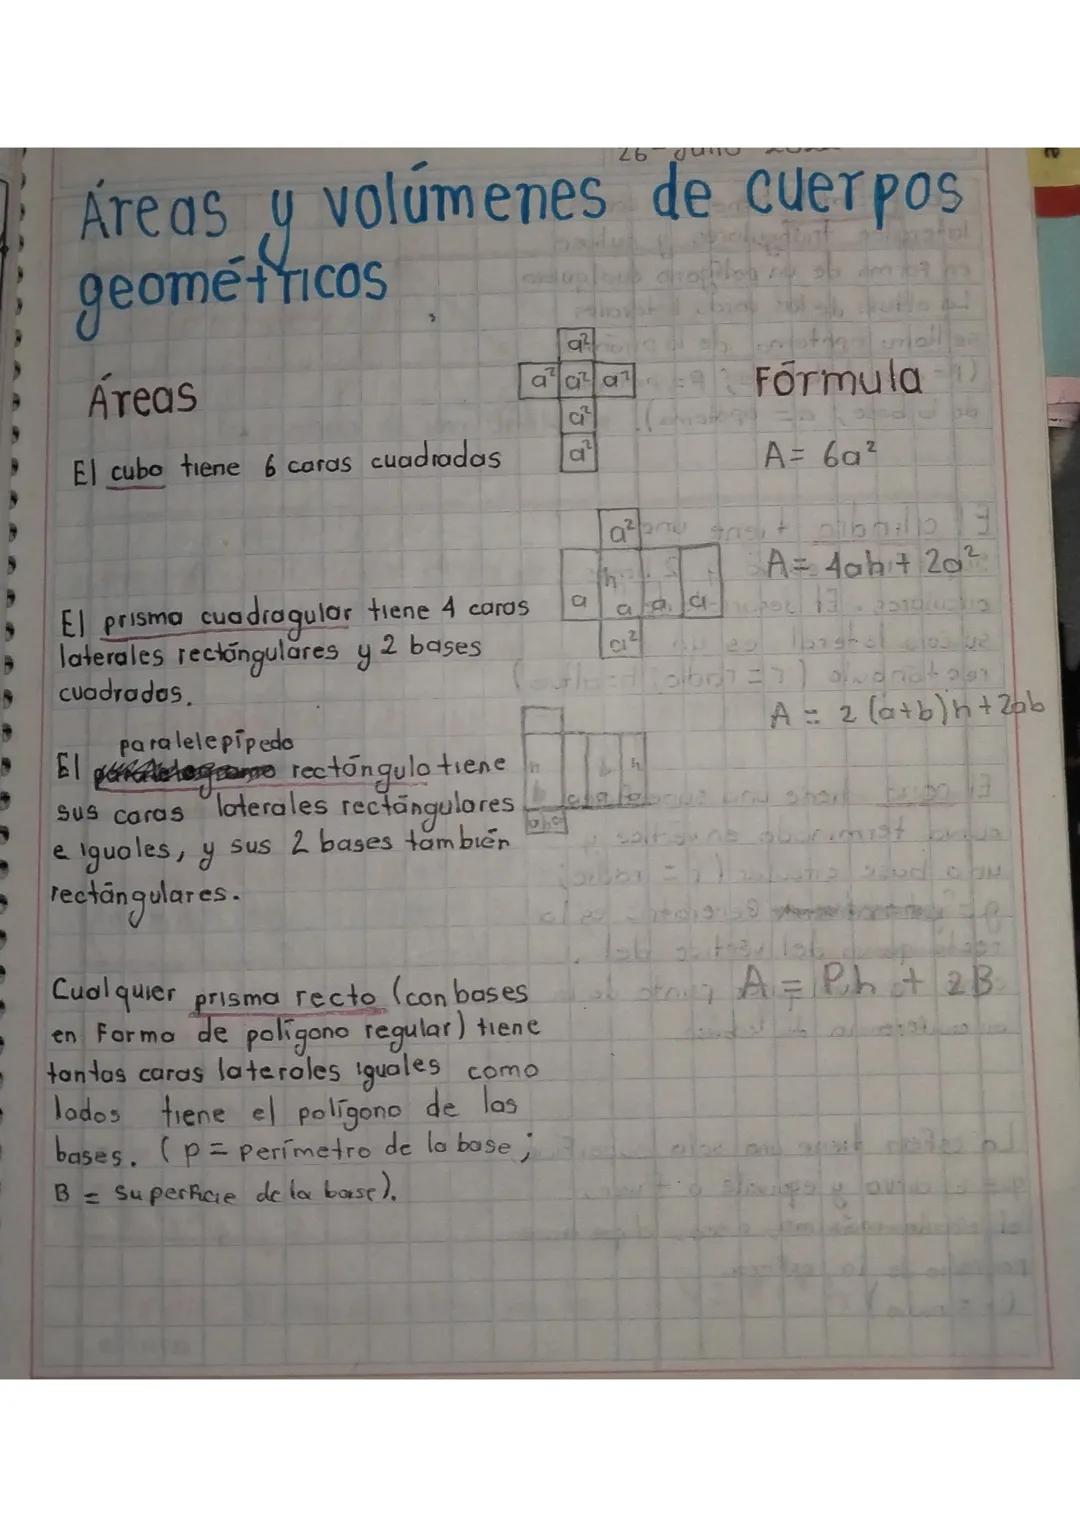 26-Julio
Áreas y volúmenes de cuerpos
geométricos
Áreas
Fórmula
a²
a² a² a²
a²
a²
El cubo tiene 6 caras cuadradas
A= 6a²
a²
h
a a a a
a²
A= 4ah+ 2a²
El prisma cuadragular tiene 4 caras
laterales rectángulares y 2 bases
cuadrados.
A = 2 (a+b)h+2ab
paralelepípedo
El rectángulo tiene
sus caras laterales rectángulares
e iguales, y sus 2 bases también
rectángulares.
h h
Cualquier prisma recto (con bases
en Forma de polígono regular) tiene
tantas caras laterales iguales como
lados tiene el polígono de las
bases. (p= perímetro de la base;
B = superficie de la base).
A = P.h + 2B